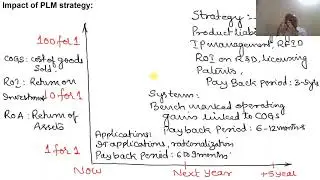 Impact of PLM strategy:
100 for 1
COGS: cost of goods
sold.
ROI: Return on
Investment
10 for 1
ROA: Return of
Assets
1 for 1
Strategy:-
Product liabi
IP management, RFID
ROI on R&D, licensing
Patents,
Pay Back period: 3-5yrs
System:-
Bench marked operating
gains linked to COGS
Payback Period: 6-12months
Applications:
IT applications, rationalization
Payback period: 6 to 9 months
Now
Next Year
+5year